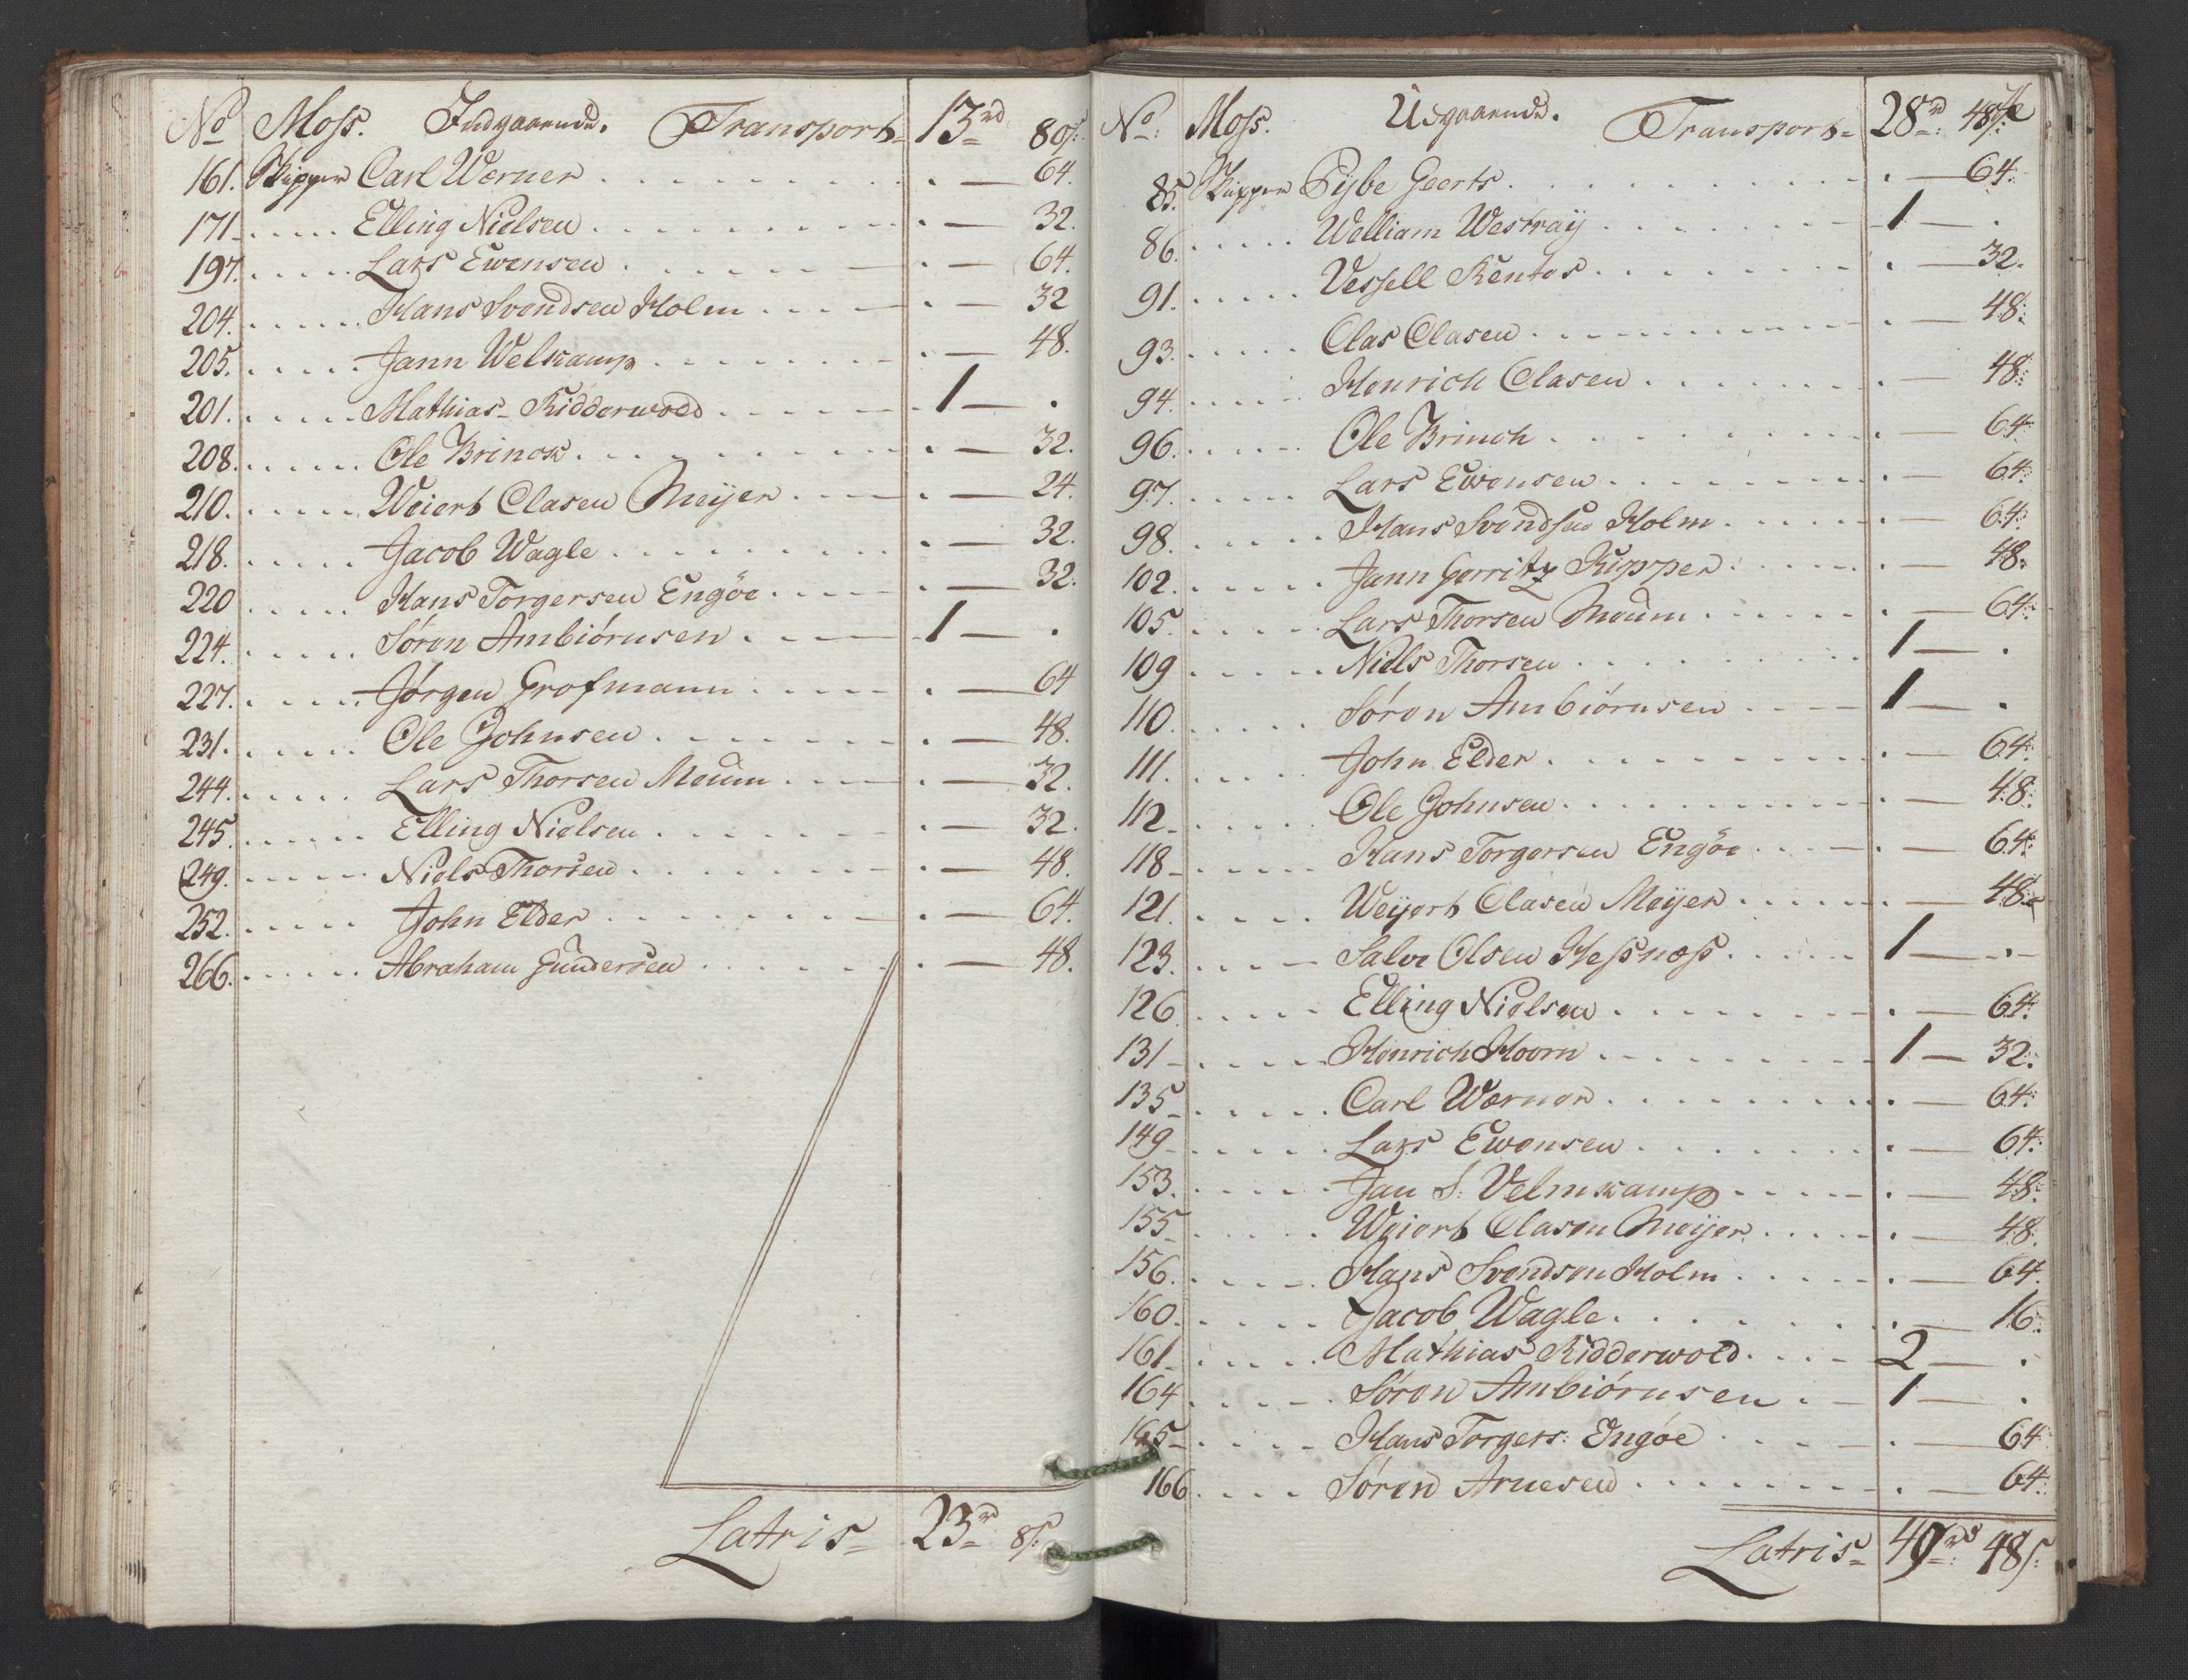 No Moss. Indgaaende. Transport= 13rd 80s:
161. Skipper Carl Werner . . . — 64.
171 . . . Elling Nielsen . . . — 32.
197. . . . Lars Ewensen . . . — 64.
204. . . . Hans Svendsen Holm . . . — 32
205. . . . Jann Welkamp . . . — 48.
201. . . . Mathias Ridderwold . . . 1 — .
208. . . . Ole Brinck . . . — 32.
210. . . . Weiert Clasen Meijer . . . — 24.
218. . . . Jacob Wagle . . . — 32.
220 . . . Hans Torgersen Engöe . . . — 32.
224. . . . Søren Ambiörnsen . . . 1 — .
227. . . . Jörgen Grofmann . . . — 64
231. . . . Ole Johnsen . . . — 48.
244. . . . Lars Thorsen Moum . . . — 32.
245. . . . Elling Nielsen . . . — 32.
249. . . . Niels Thorsen . . . — 48.
252. . . . John Elder . . . — 64.
266. . . . Abraham Gundersen . . . — 48.
Latris= 23rd 8s:
No: Moss. Udgaaende. Transport= 28rd: 48s:
85. Skipper Pijbe Geerts . . . — 64.
86. . . . Welliam Westraÿ . . . 1 — .
91. . . . Vessell Rentes . . . — 32.
93. . . . Clas Clasen . . . — 48.
94. . . . Henrich Clasen . . . — 48.
96. . . . Ole Brinch . . . — 64
97. . . . Lars Ewensen . . . — 64.
98. . . . Hans Svendsen Holm . . . — 64.
102. . . . Jann Gerritz Kupper . . . — 48.
105. . . . Lars Thorsen Moum . . . — 64.
109 . . . Niels Thorsen . . . 1 — .
110. . . . Søren Ambiörnsen . . . 1 — .
111. . . . John Elder . . . — 64.
112 . . . Ole Johnsen . . . — 48.
118 . . . Hans Torgersen Engöe . . . — 64.
121. . . . Weijert Clasen Meijer . . . — 48.
123. . . . Salve Olsen Hessnæss . . . 1 — .
126. . . . Elling Nielsen . . . — 64.
131 . . . Henrich Hoorn . . . 1 — 32.
135 . . . Carl Werner . . . — 64.
149 . . . Lars Ewensen . . . — 64.
153. . . . Jan S: Velmkamp . . . — 48.
155 . . . Weiert Clasen Meijer . . . — 48.
156. . . . Hans Svendsen Holm . . . — 64.
160. . . . Jacob Wagle . . . — 16.
161 . . . Mathias Ridderwold . . . 2 — .
164 . . . Søren Ambiörnsen . . . 1 — .
165 . . . Hans Torgers: Engöe . . . — 64
166 . . . Søren Arnesen . . . — 64.
Latris= 49rd: 48s: